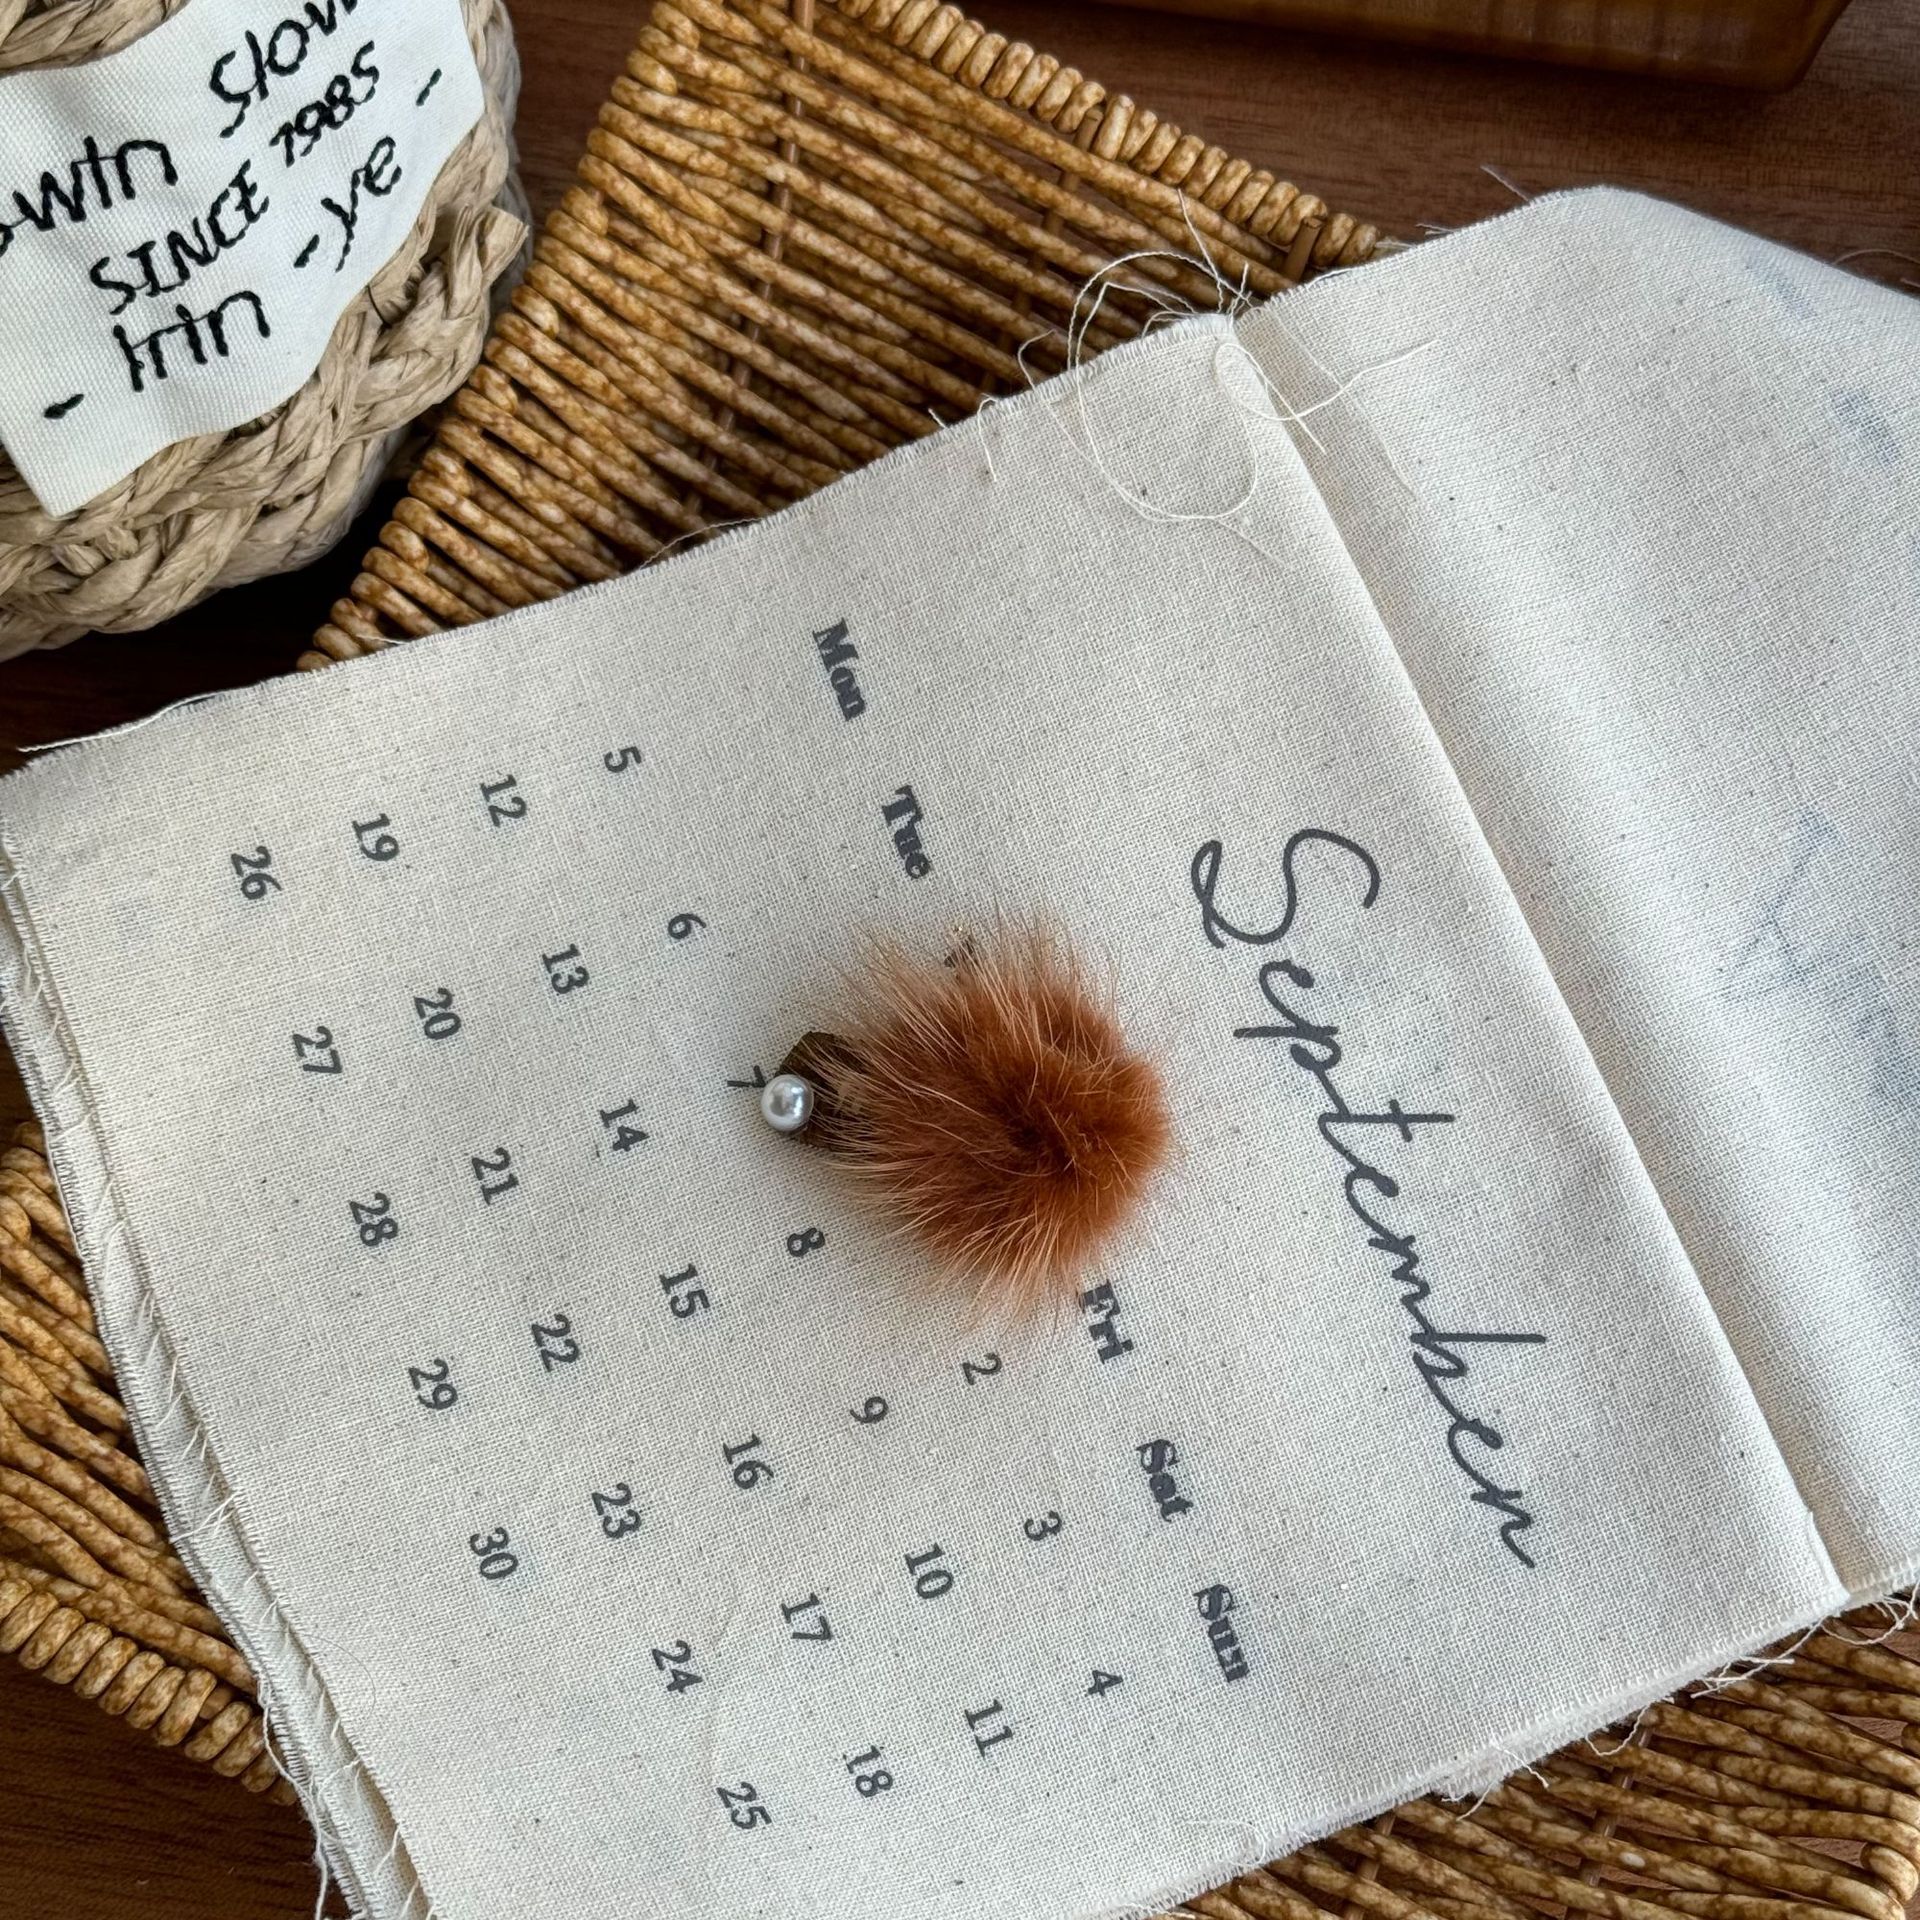 slow
SINCE 1985
-ye-
-irin
September
Mon Tue Fri Sat Sun
2 3 4
5 6 7 8 9 10 11
12 13 14 15 16 17 18
19 20 21 22 23 24 25
26 27 28 29 30